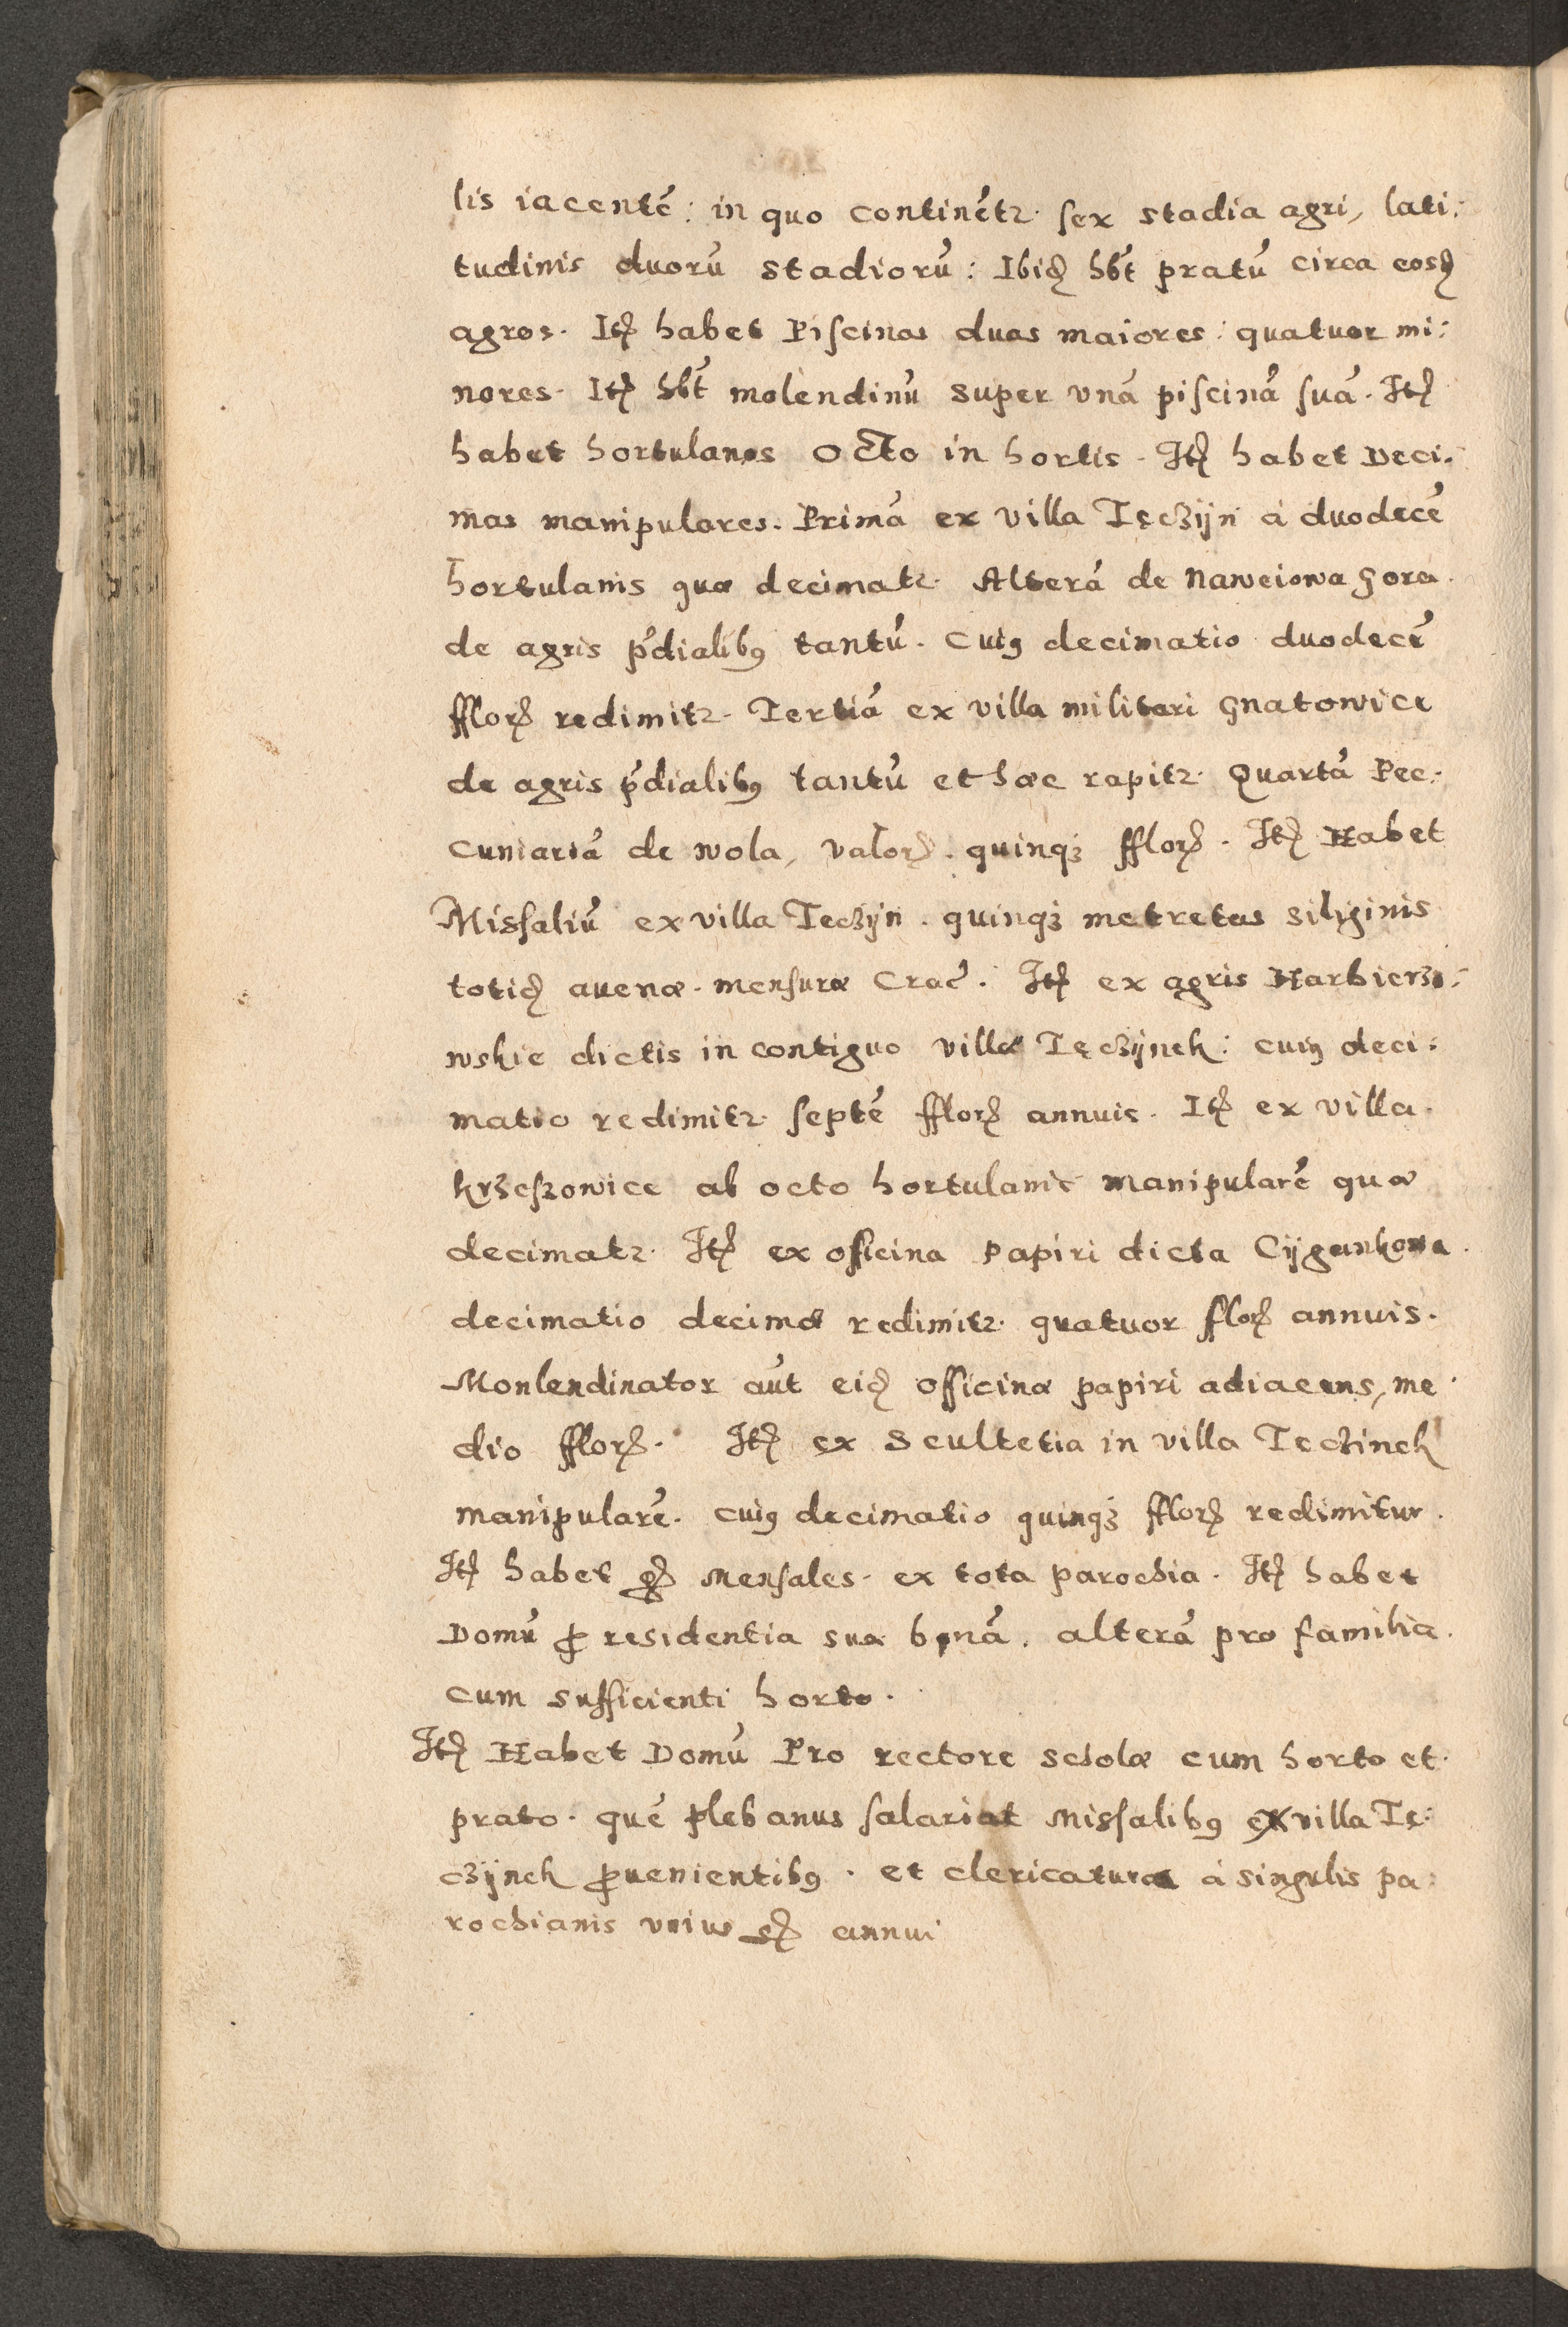 lis iacentē: in quo continētr sex stadia agri, lati:
tudinis duorū stadiorū: Ibid hbt pratū circa eosd
agros. Itē habet Piscinas duas maiores: quatuor mi:
nores. Itē hbt molendinū super vnā piscinā suā. Itē
habet hortulanos octo in hortis. Itē habet Deci:
mas manipulares. Primā ex villa Tęczÿn à duodecē
hortulanis quæ decimatr. Alterā de Naweiowa gora
de agris p̄dialibꝯ tantū. Cuiꝯ decimatio duodecē
fflorꝭ redimitr. Tertiā ex villa militari Gnatowice
de agris p̄dialibꝯ tantū et hæc rapitr. Quartā Pec:
cuniariā de wola, valorꝭ. quinqꝫ fflorꝭ. Itē Habet
Missaliū ex villa Teczÿn. quinqꝫ metretas siliginis
totid auenæ. mensuræ Crac̄. Itē ex agris Harbierzo:
wskie dictis in contiguo villæ Tęczÿnek: cuiꝯ deci:
matio redimitr. septē fflorꝭ annuis. Itē ex villa
krzeszowice ab octo hortulanis manipularē quæ
decimatr. Itē ex officina papiri dicta Cÿgankowa
decimatio decimæ redimitr. quatuor florꝭ annuis.
Monlendinator aūt eid officinæ papiri adiacens, me
dio fflorꝭ. Itē ex Scultetia in villa Teczinek
manipularē. cuiꝯ decimatio quinqꝫ fflorꝭ redimitur.
Itē habet Mensales. ex tota parochia. Itē habet
Domū ꝓ residentia sua bonā. alterā pro familia.
cum sufficienti horto.
Itē Habet Domū Pro rectore scholæ cum horto et
prato. quē plebanus salariat Missalibꝯ ex villa Tę:
czÿnek ꝓuenientibꝯ. et clericaturæ à singulis pa:
rochianis vnius annui